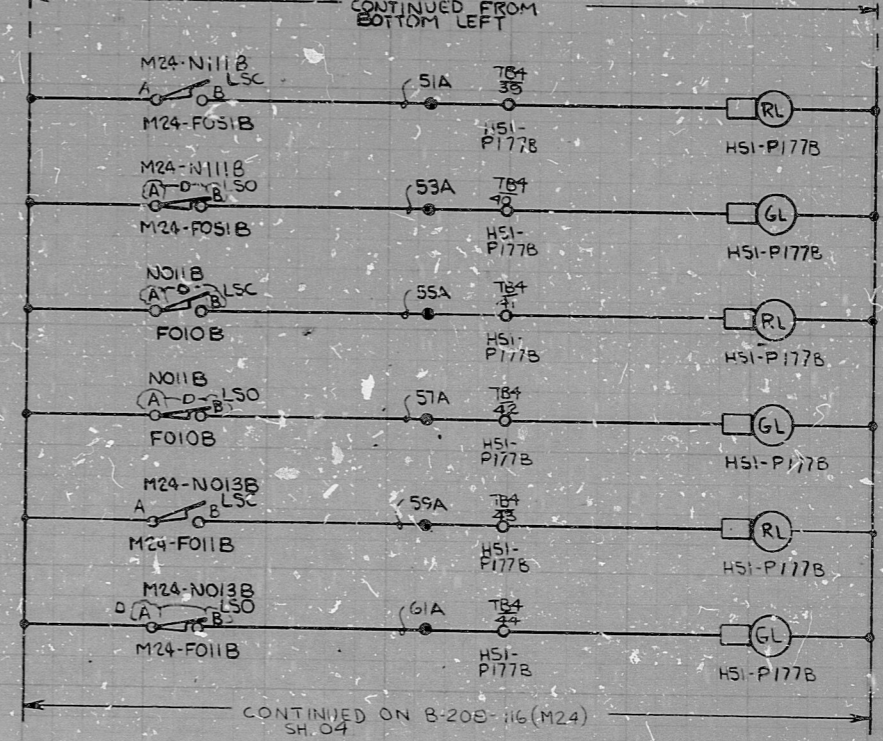 CONTINUED FROM
BOTTOM LEFT
M24-N111B
A B LSC
M24-F051B
51A
TB4
39
H51-
P177B
RL
H51-P177B
M24-N111B
A D B LSO
M24-F051B
53A
TB4
40
H51-
P177B
GL
H51-P177B
N011B
A D B LSC
F010B
55A
TB4
41
H51-
P177B
RL
H51-P177B
N011B
A D B LSO
F010B
57A
TB4
42
H51-
P177B
GL
H51-P177B
M24-N013B
A B LSC
M24-F011B
59A
TB4
43
H51-
P177B
RL
H51-P177B
M24-N013B
D A B LSO
M24-F011B
61A
TB4
44
H51-
P177B
GL
H51-P177B
CONTINUED ON B-208-116(M24)
SH.04